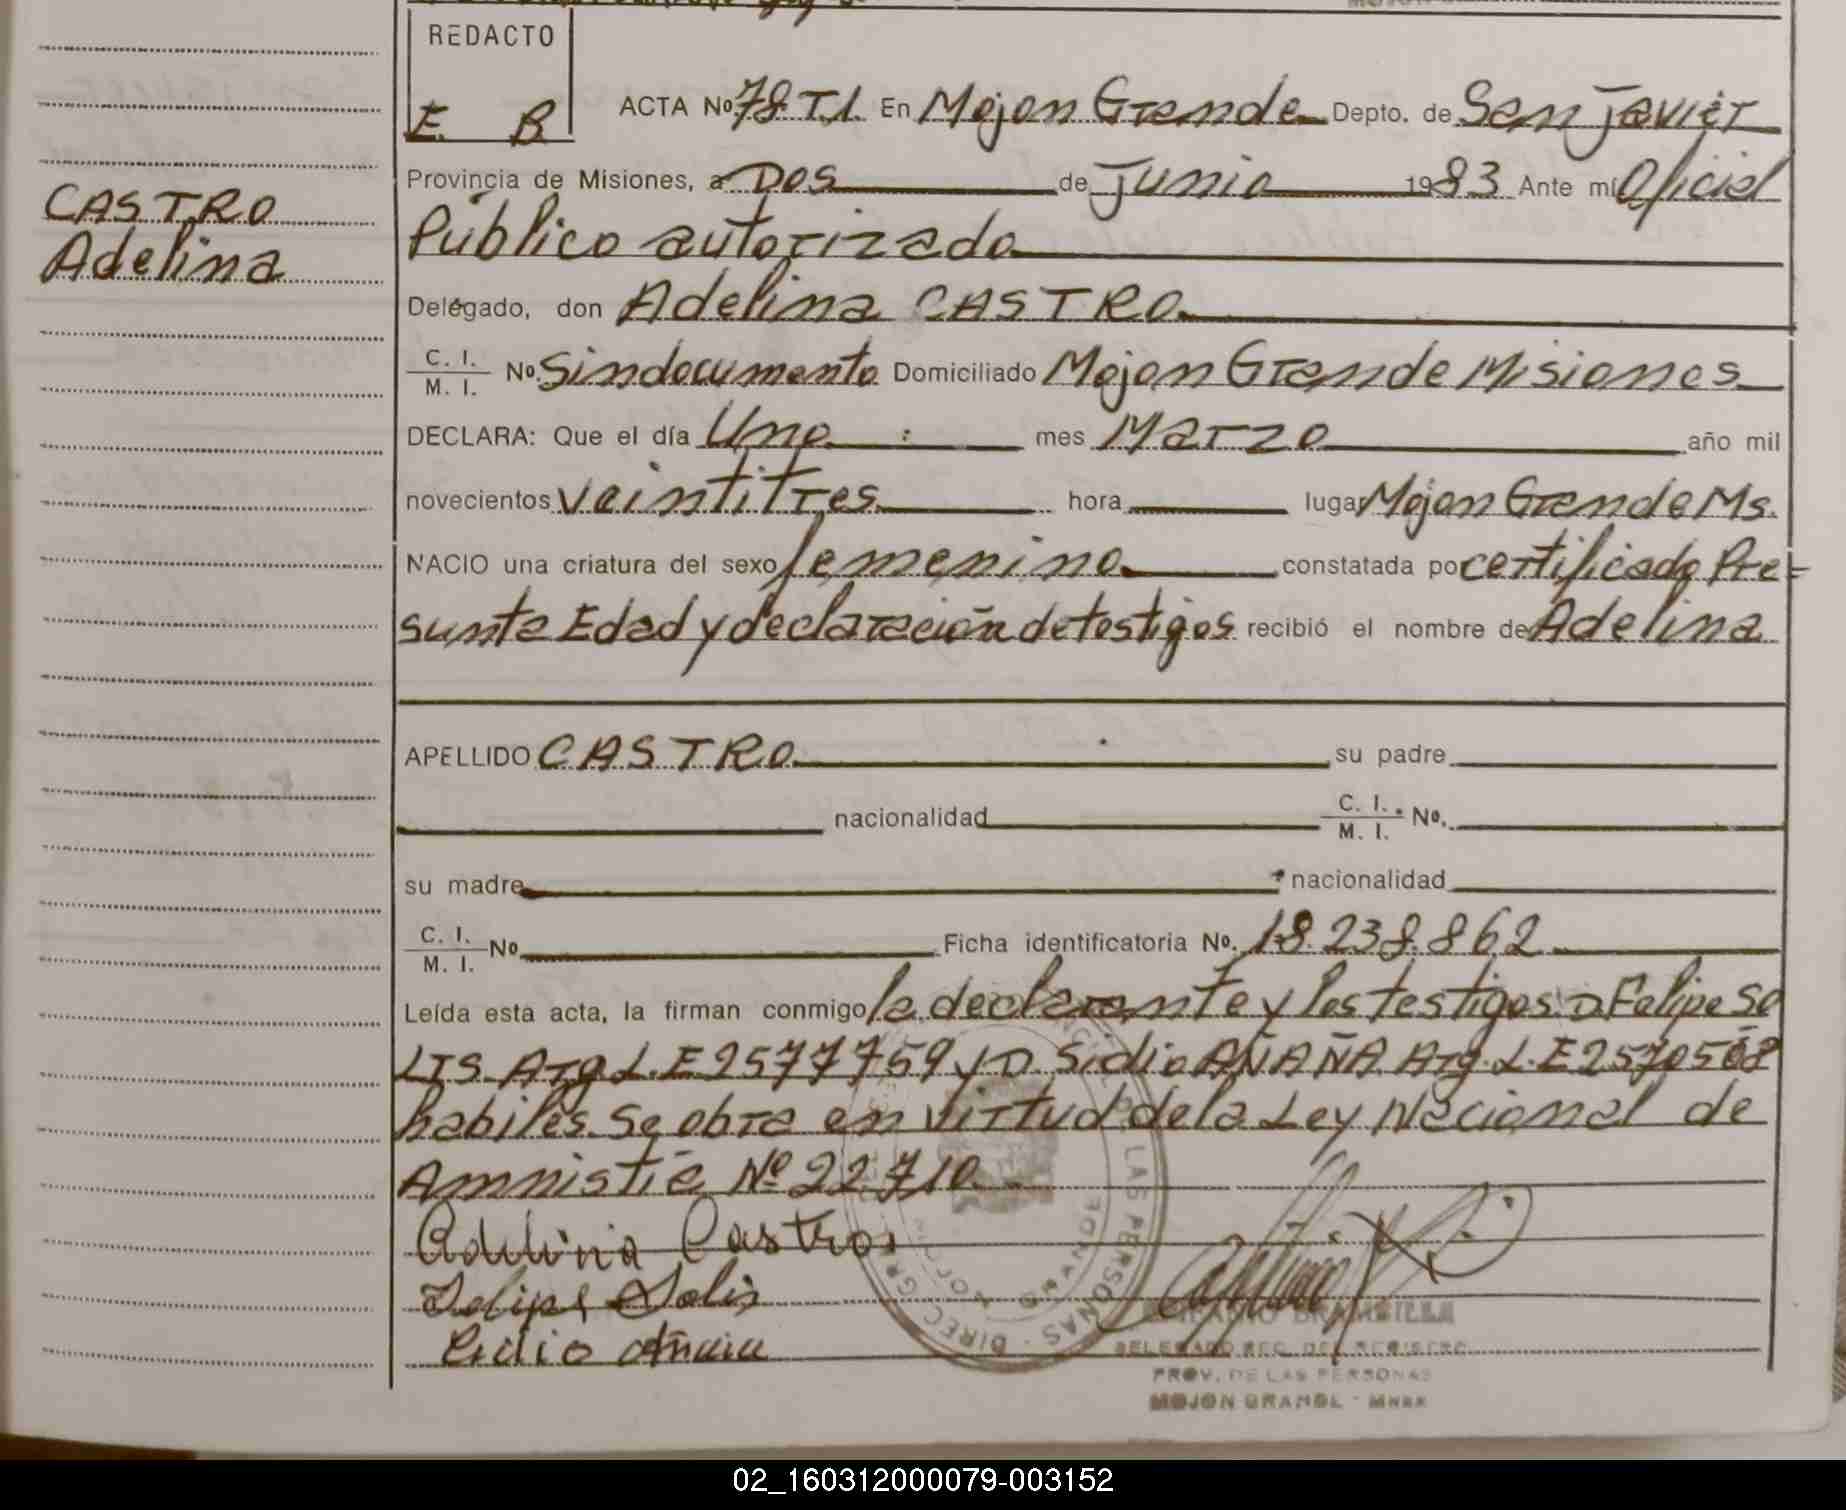 REDACTO
E. B
ACTA No 78 T.1. En Mojon Grande Depto. de San Javier
Provincia de Misiones, a Dos de Junio 1983 Ante mí Oficial
CASTRO
Público autorizado
Adelina
Delegado, don Adelina CASTRO
C. I. / M. I. No. Sindocumento Domiciliado Mojon Grande Misiones
DECLARA: Que el día Uno mes Marzo año mil
novecientos veintitres hora lugar Mojon Grande Ms.
NACIO una criatura del sexo femenino constatada por certificado Pre=
sunta Edad y declaración de testigos recibió el nombre de Adelina
APELLIDO CASTRO su padre
nacionalidad C. I. / M. I. No.
su madre nacionalidad
C. I. / M. I. No Ficha identificatoria No. 18.238.862
Leída esta acta, la firman conmigo la declarante y los testigos D Felipe So
LIS Arg L.E 2577759 y D. Sidio AÑAÑA Arg. L.E 2570508
habiles. Se obra en virtud de la Ley Nacional de
Amnistia Nº 22710.
Adelina Castro
Felipe Solis
BRAMBILLA
DELEGADO REG. DEL REGISTRO
PROV. DE LAS PERSONAS
MOJON GRANDE
02_160312000079-003152